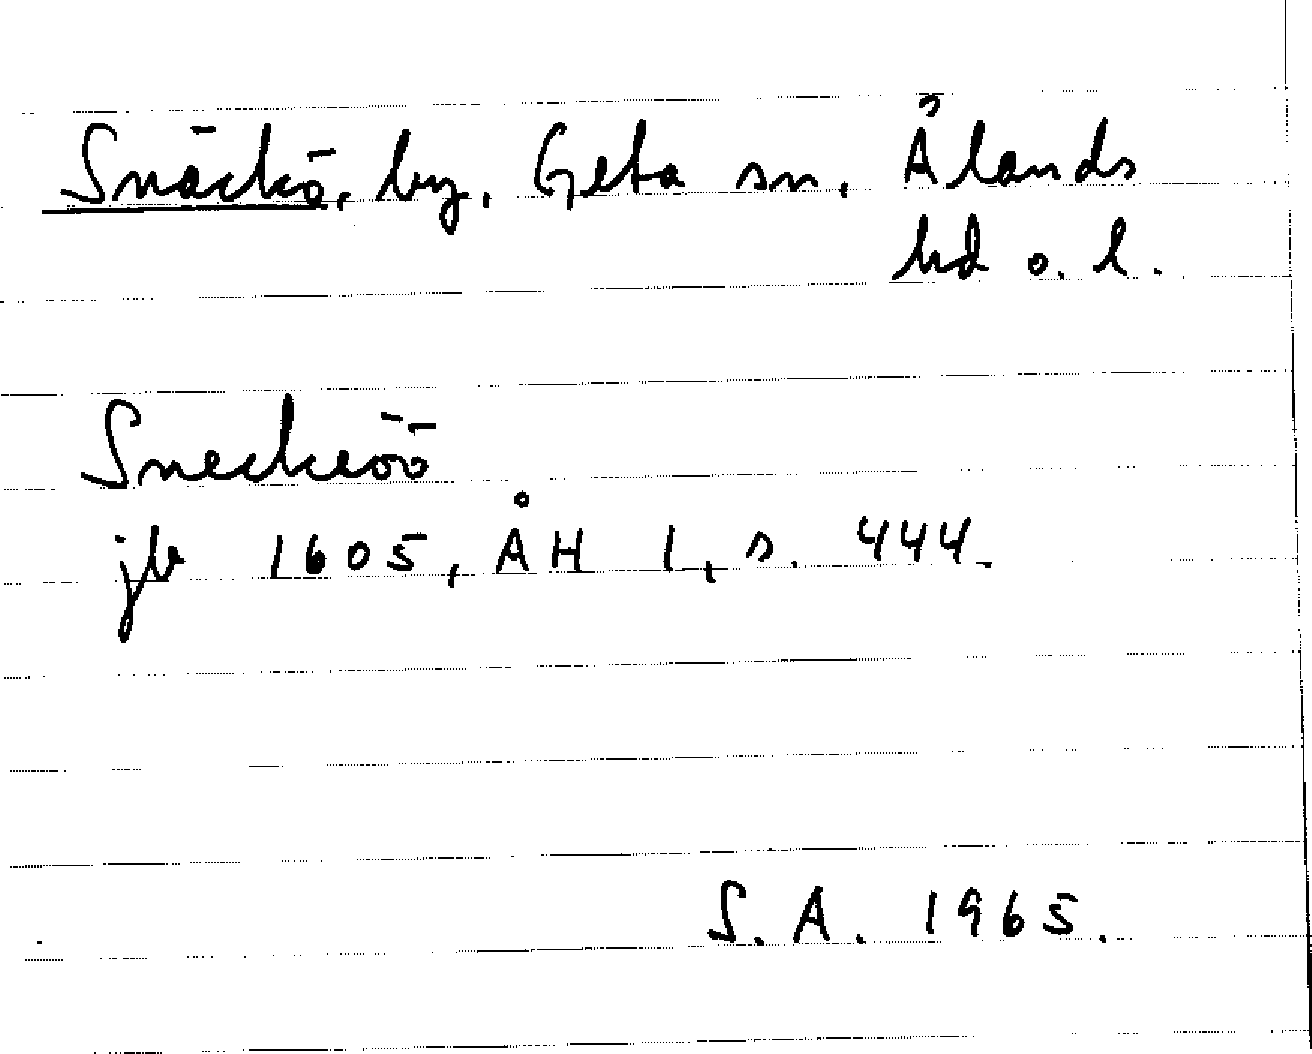 Snäckö, by, Geta sn, Ålands
hd o. l.
Sneckeöö
jb 1605, ÅH 1, s. 444.
S. A. 1965.